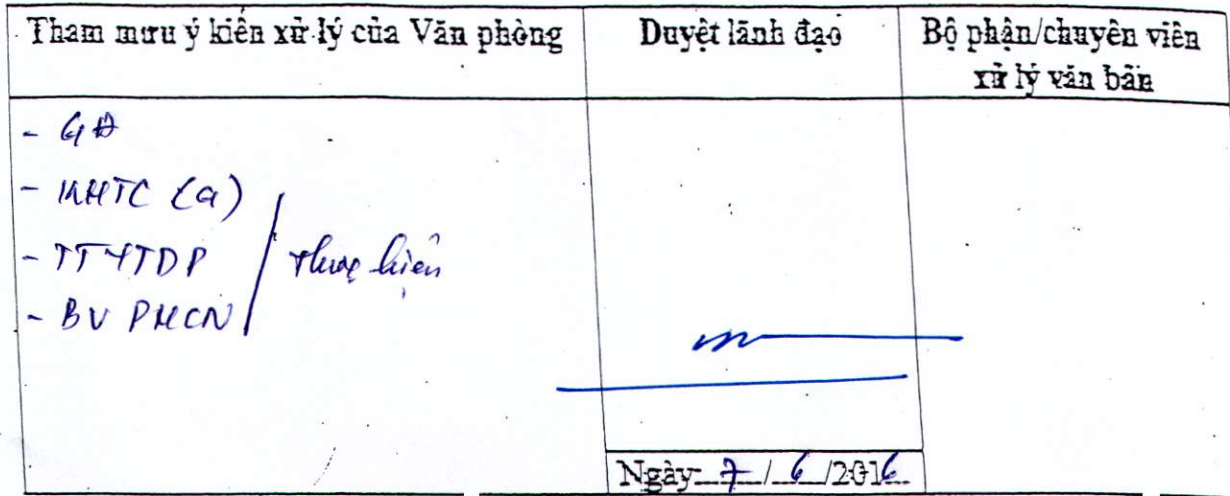 Tham mưu ý kiến xử lý của Văn phòng
Duyệt lãnh đạo
Bộ phận/chuyên viên
xử lý văn bản
- GĐ
- KHTC (a)
- TTYTDP
- BV PHCN
thực hiện
Ngày 7/6/2016